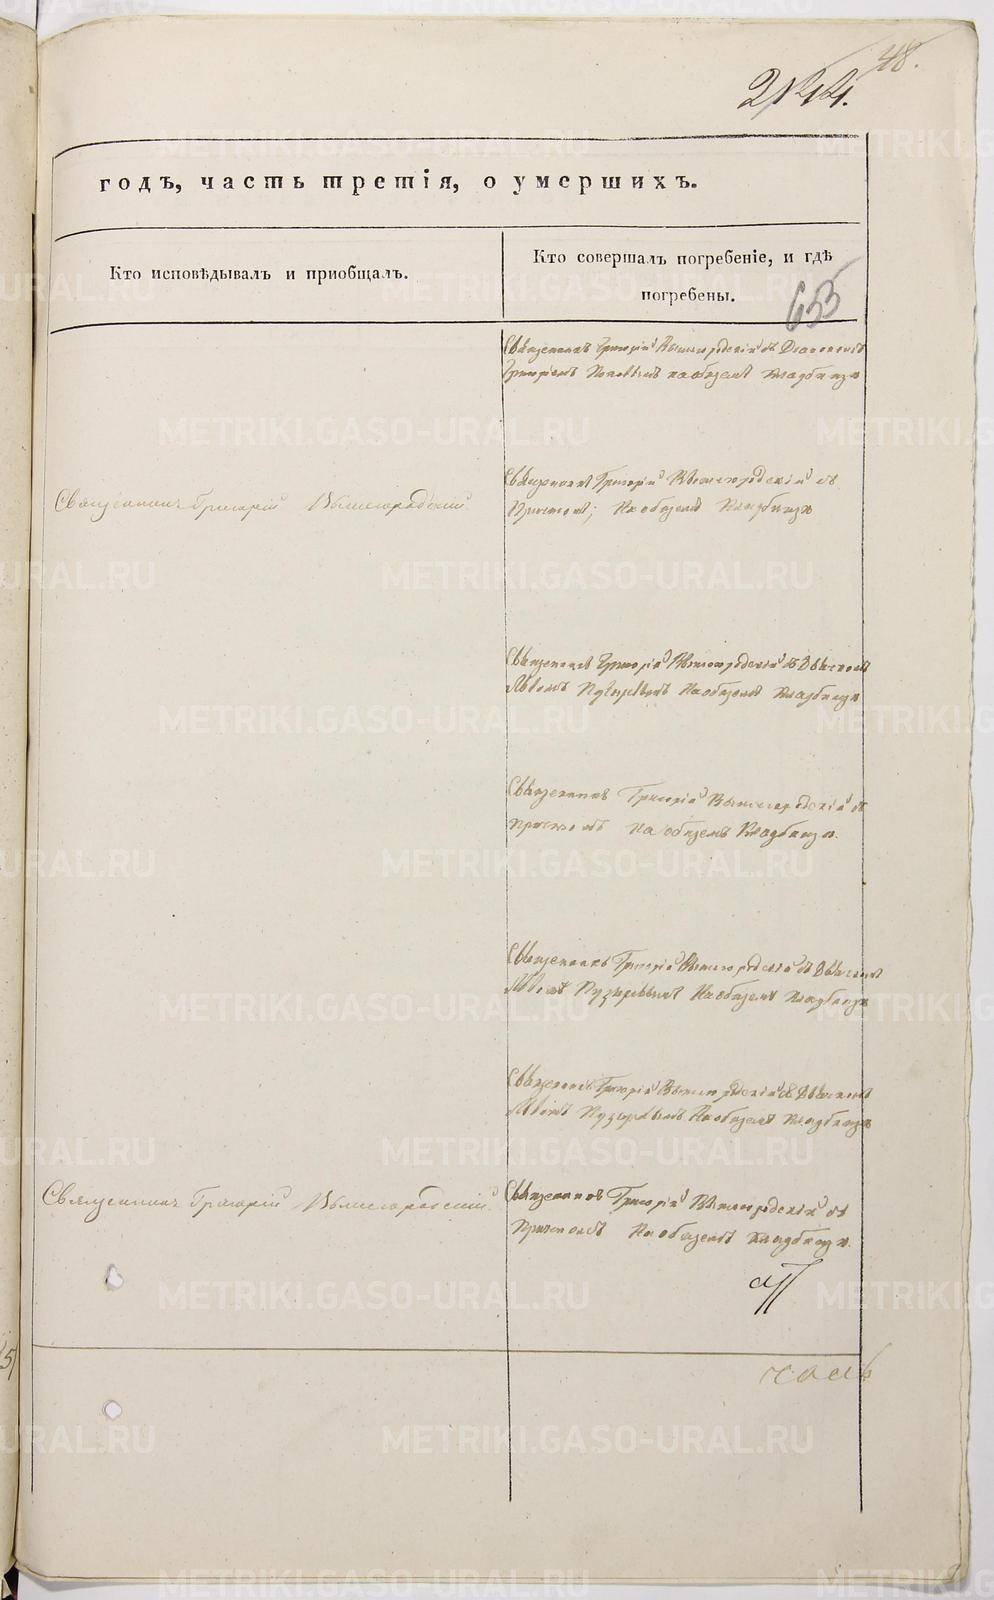 48.
годъ, часть третія, о умершихъ.
Кто исповѣдывалъ и приобщалъ.
Кто совершалъ погребеніе, и гдѣ
погребены.
653
Священникъ Григорій Вышегородскій съ Діакономъ
Григоріемъ Поповымъ на общемъ кладбищѣ
Священникъ Григорій Вышегородскій
Священникъ Григорій Вышегородскій съ
Причтомъ; На общемъ Кладбищѣ
Священникъ Григорій Вышегородскій съ Дьячкомъ
На общемъ кладбищѣ
Священникъ Григорій Вышегородскій съ
Причтомъ На общемъ Кладбищѣ.
Священникъ Григорій Вышегородскій съ Дьячкомъ
На общемъ кладбищѣ
Священникъ Григорій Вышегородскій съ Дьячкомъ
На общемъ кладбищѣ
Священникъ Григорій Вышегородскій
Священникъ Григорій Вышегородскій съ
Причтомъ На общемъ кладбищѣ.
METRIKI.GASO-URAL.RU